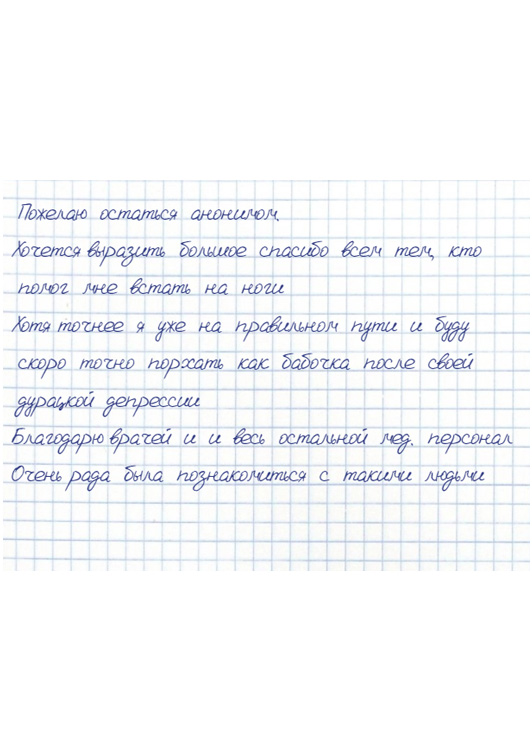 Пожелаю остаться анонимом.
Хочется выразить большое спасибо всем тем, кто
помог мне встать на ноги
Хотя точнее я уже на правильном пути и буду
скоро точно порхать как бабочка после своей
дурацкой депрессии
Благодарю врачей и и весь остальной мед. персонал
Очень рада была познакомиться с такими людьми